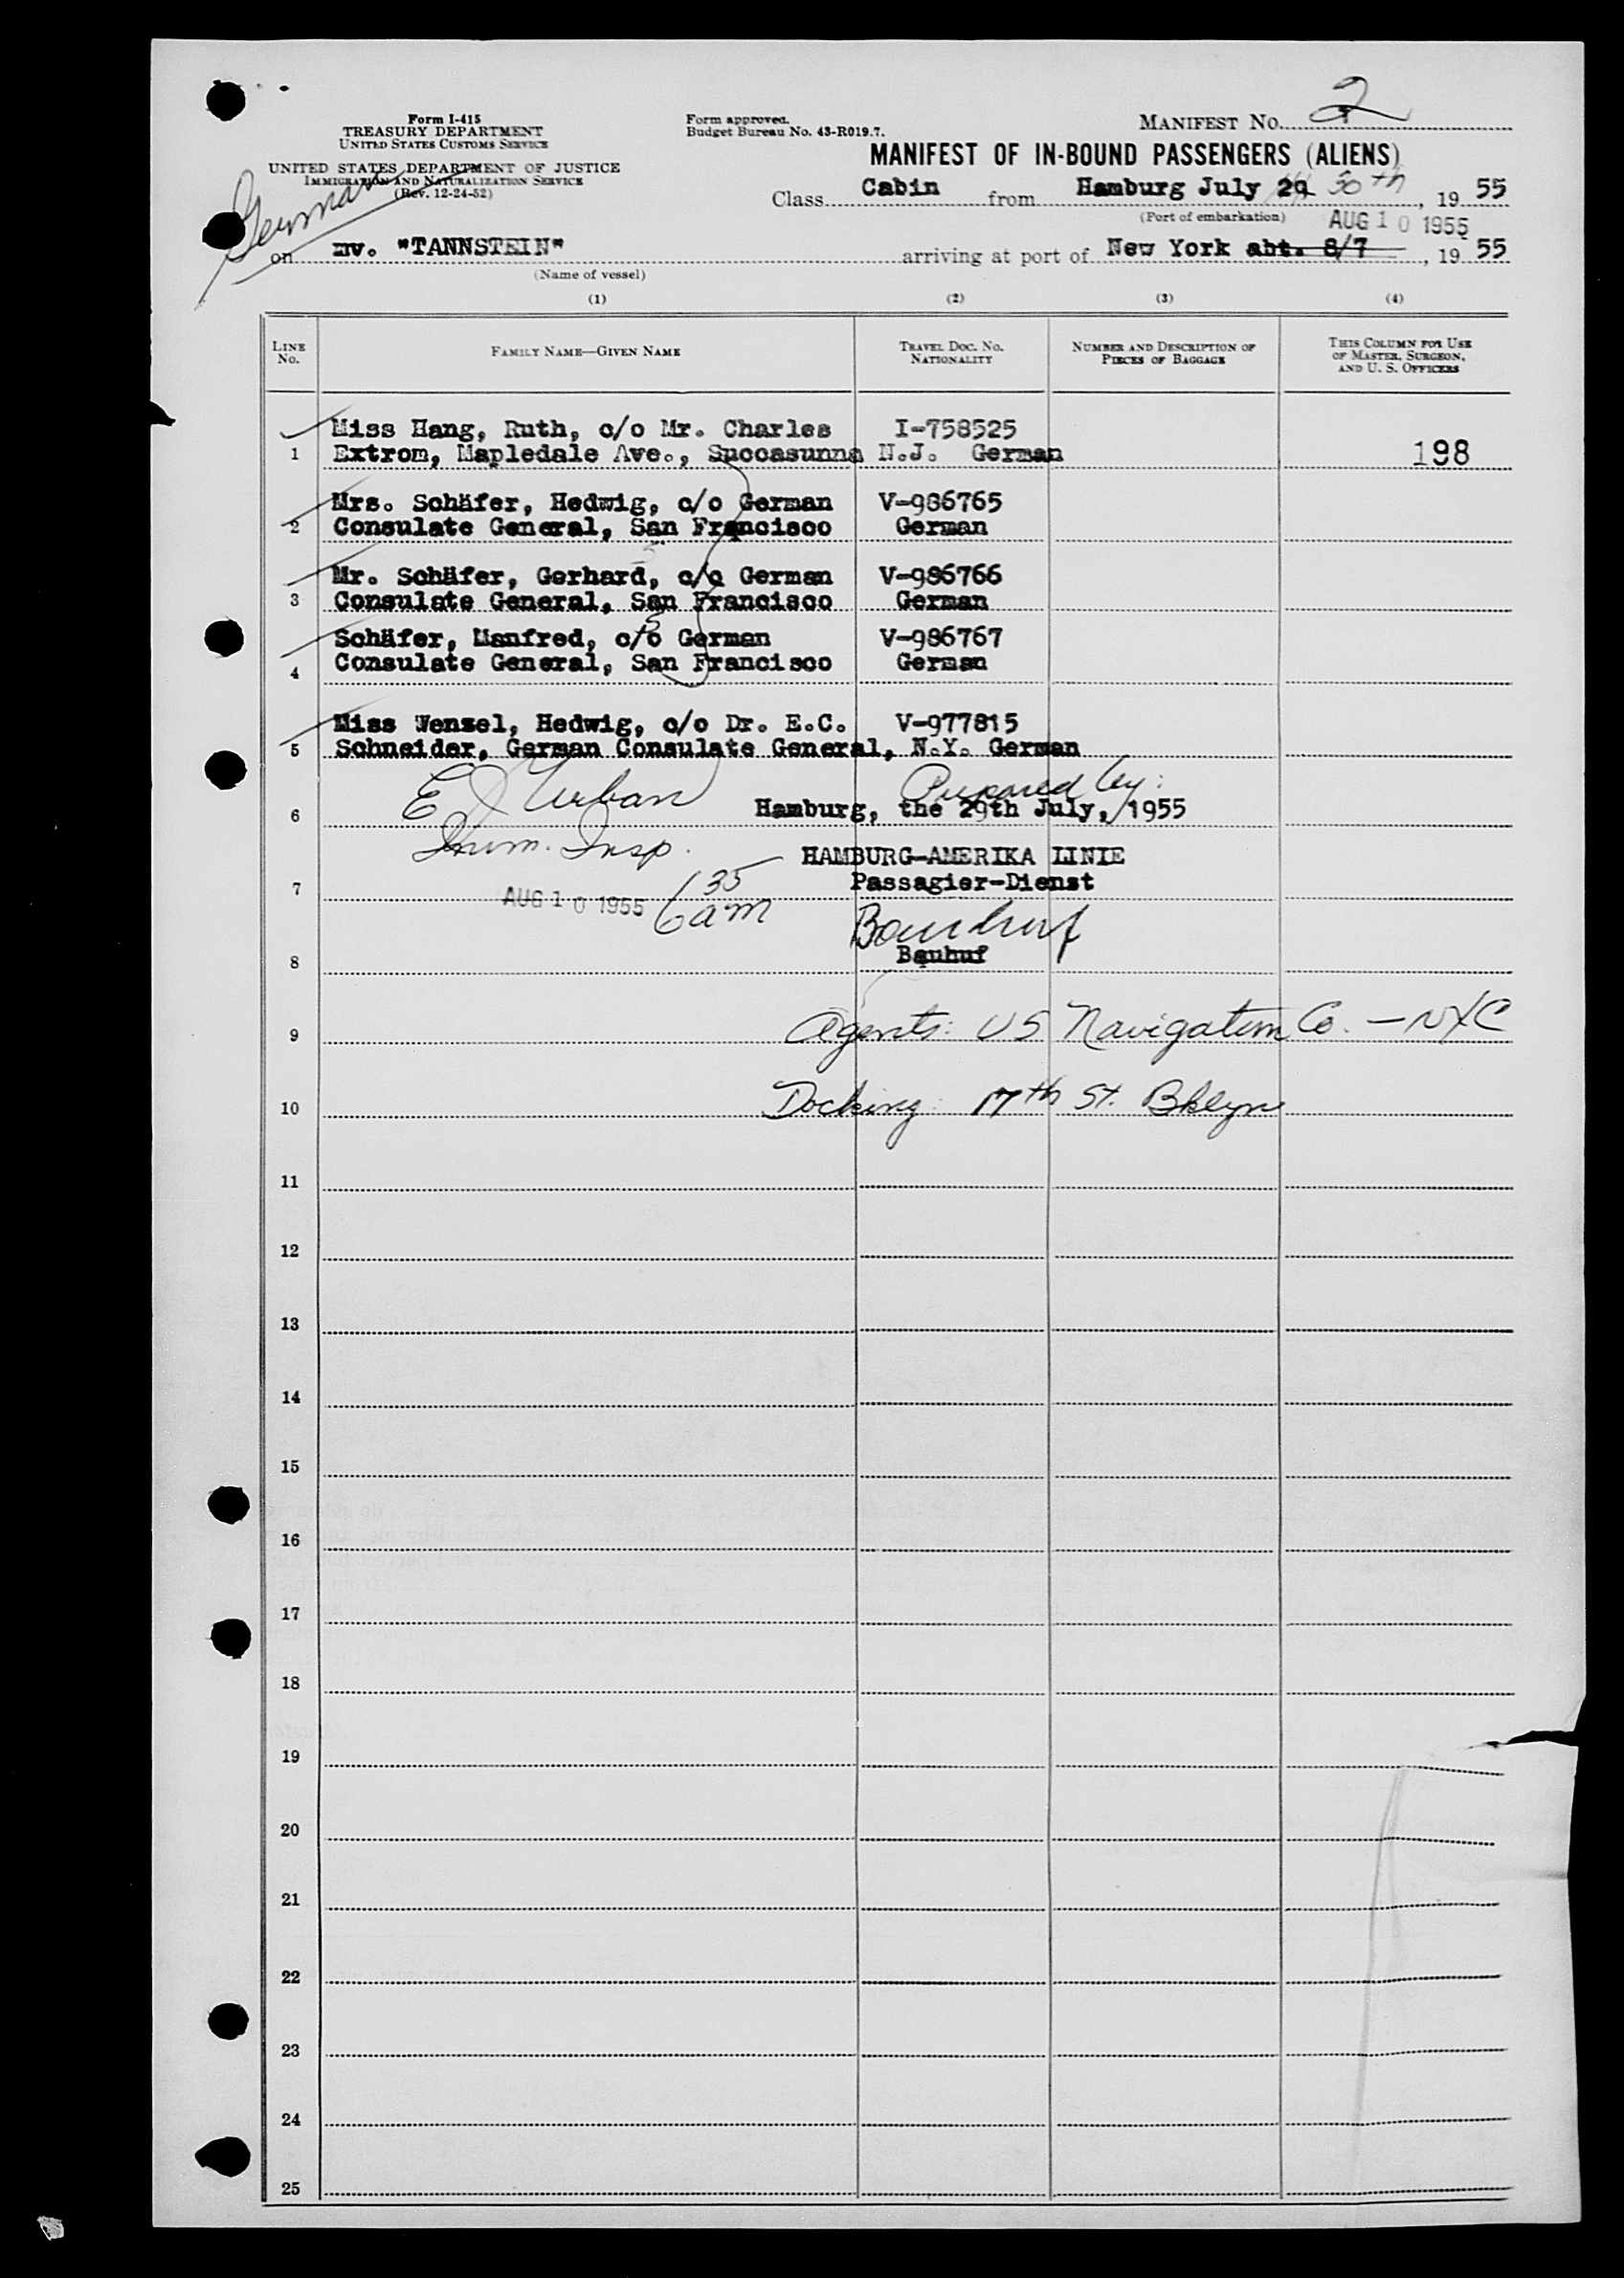 Form I-415
TREASURY DEPARTMENT
UNITED STATES CUSTOMS SERVICE
UNITED STATES DEPARTMENT OF JUSTICE
IMMIGRATION AND NATURALIZATION SERVICE
(Rev. 12-24-52)
Form approved.
Budget Bureau No. 43-R019.7.
MANIFEST NO. 2
MANIFEST OF IN-BOUND PASSENGERS (ALIENS)
Class Cabin from Hamburg July 29 30th, 19 55
(Port of embarkation) AUG 10 1955
German
on mv. "TANNSTEIN" arriving at port of New York abt. 8/7, 19 55
(Name of vessel)
(1) (2) (3) (4)
LINE NO.
FAMILY NAME—GIVEN NAME
TRAVEL DOC. NO. NATIONALITY
NUMBER AND DESCRIPTION OF PIECES OF BAGGAGE
THIS COLUMN FOR USE OF MASTER, SURGEON, AND U. S. OFFICERS
Miss Hang, Ruth, c/o Mr. Charles I-758525
1 Extrom, Mapledale Ave., Succasunna N.J. German 198
Mrs. Schäfer, Hedwig, c/o German V-986765
2 Consulate General, San Francisco German
Mr. Schäfer, Gerhard, c/o German V-986766
3 Consulate General, San Francisco German
Schäfer, Manfred, c/o German V-986767
4 Consulate General, San Francisco German
Miss Wenzel, Hedwig, c/o Dr. E.C. V-977815
5 Schneider, German Consulate General, N.Y. German
E J Urban Prepared by:
6 Hamburg, the 29th July, 1955
Imm. Insp. HAMBURG-AMERIKA LINIE
7 Passagier-Dienst
AUG 10 1955 6 35 am
Bauhuf
8 Bauhuf
9 Agents: US Navigation Co. — NYC
10 Docking: 17th St. Bklyn
11
12
13
14
15
16
17
18
19
20
21
22
23
24
25